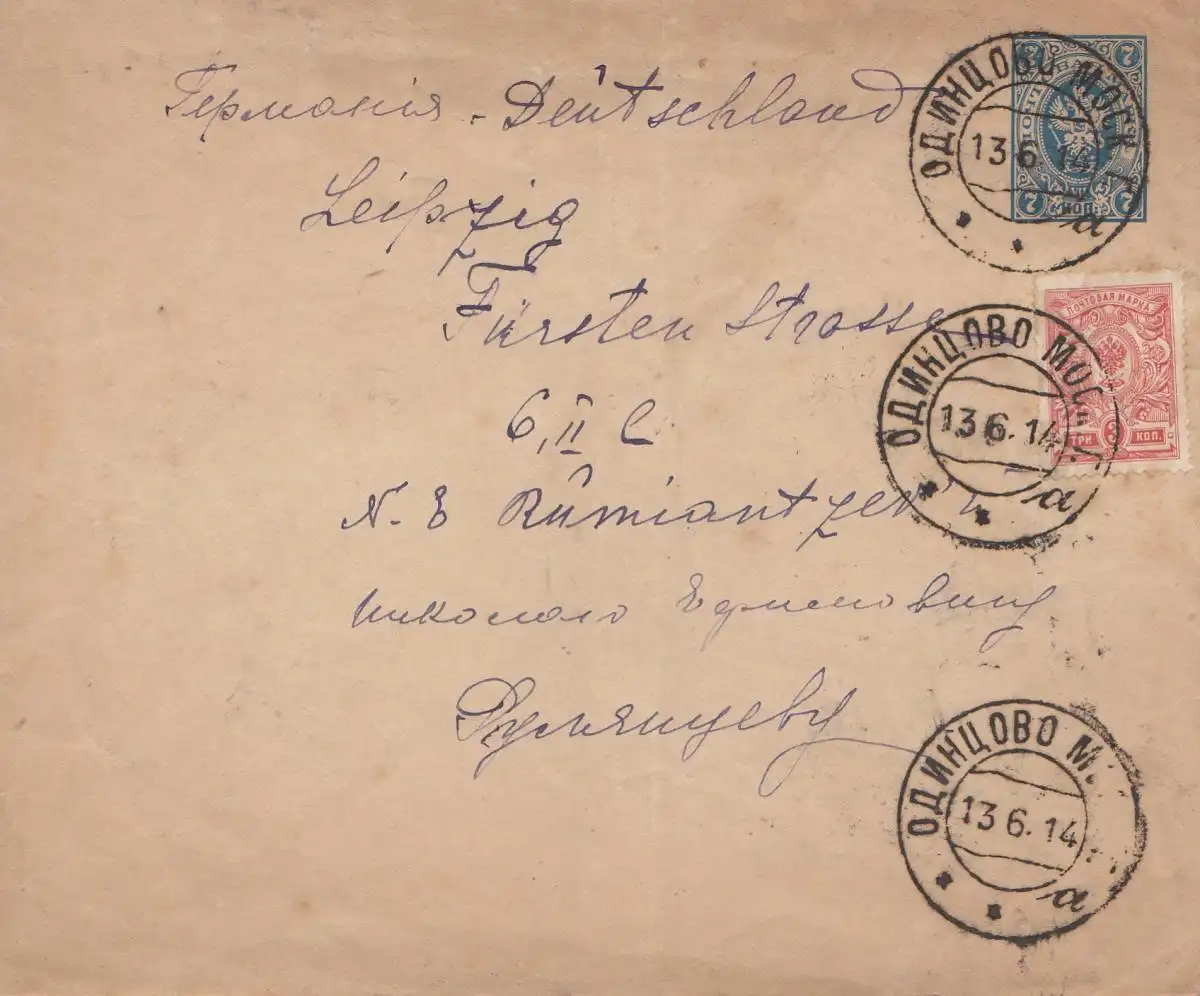 Германія - Deutschland
Leipzig
Fürsten Strasse
6, II l
N. E Rumiantzew'у
Николаю Ефимовичу
Румянцеву
7 7
КОП.
7 7
ОДИНЦОВО МОСК.
13 6. 14
а
ПОЧТОВАЯ МАРКА
ТРИ 3 КОП.
ОДИНЦОВО МОС
13 6. 14
а
ОДИНЦОВО М
13 6. 14
а